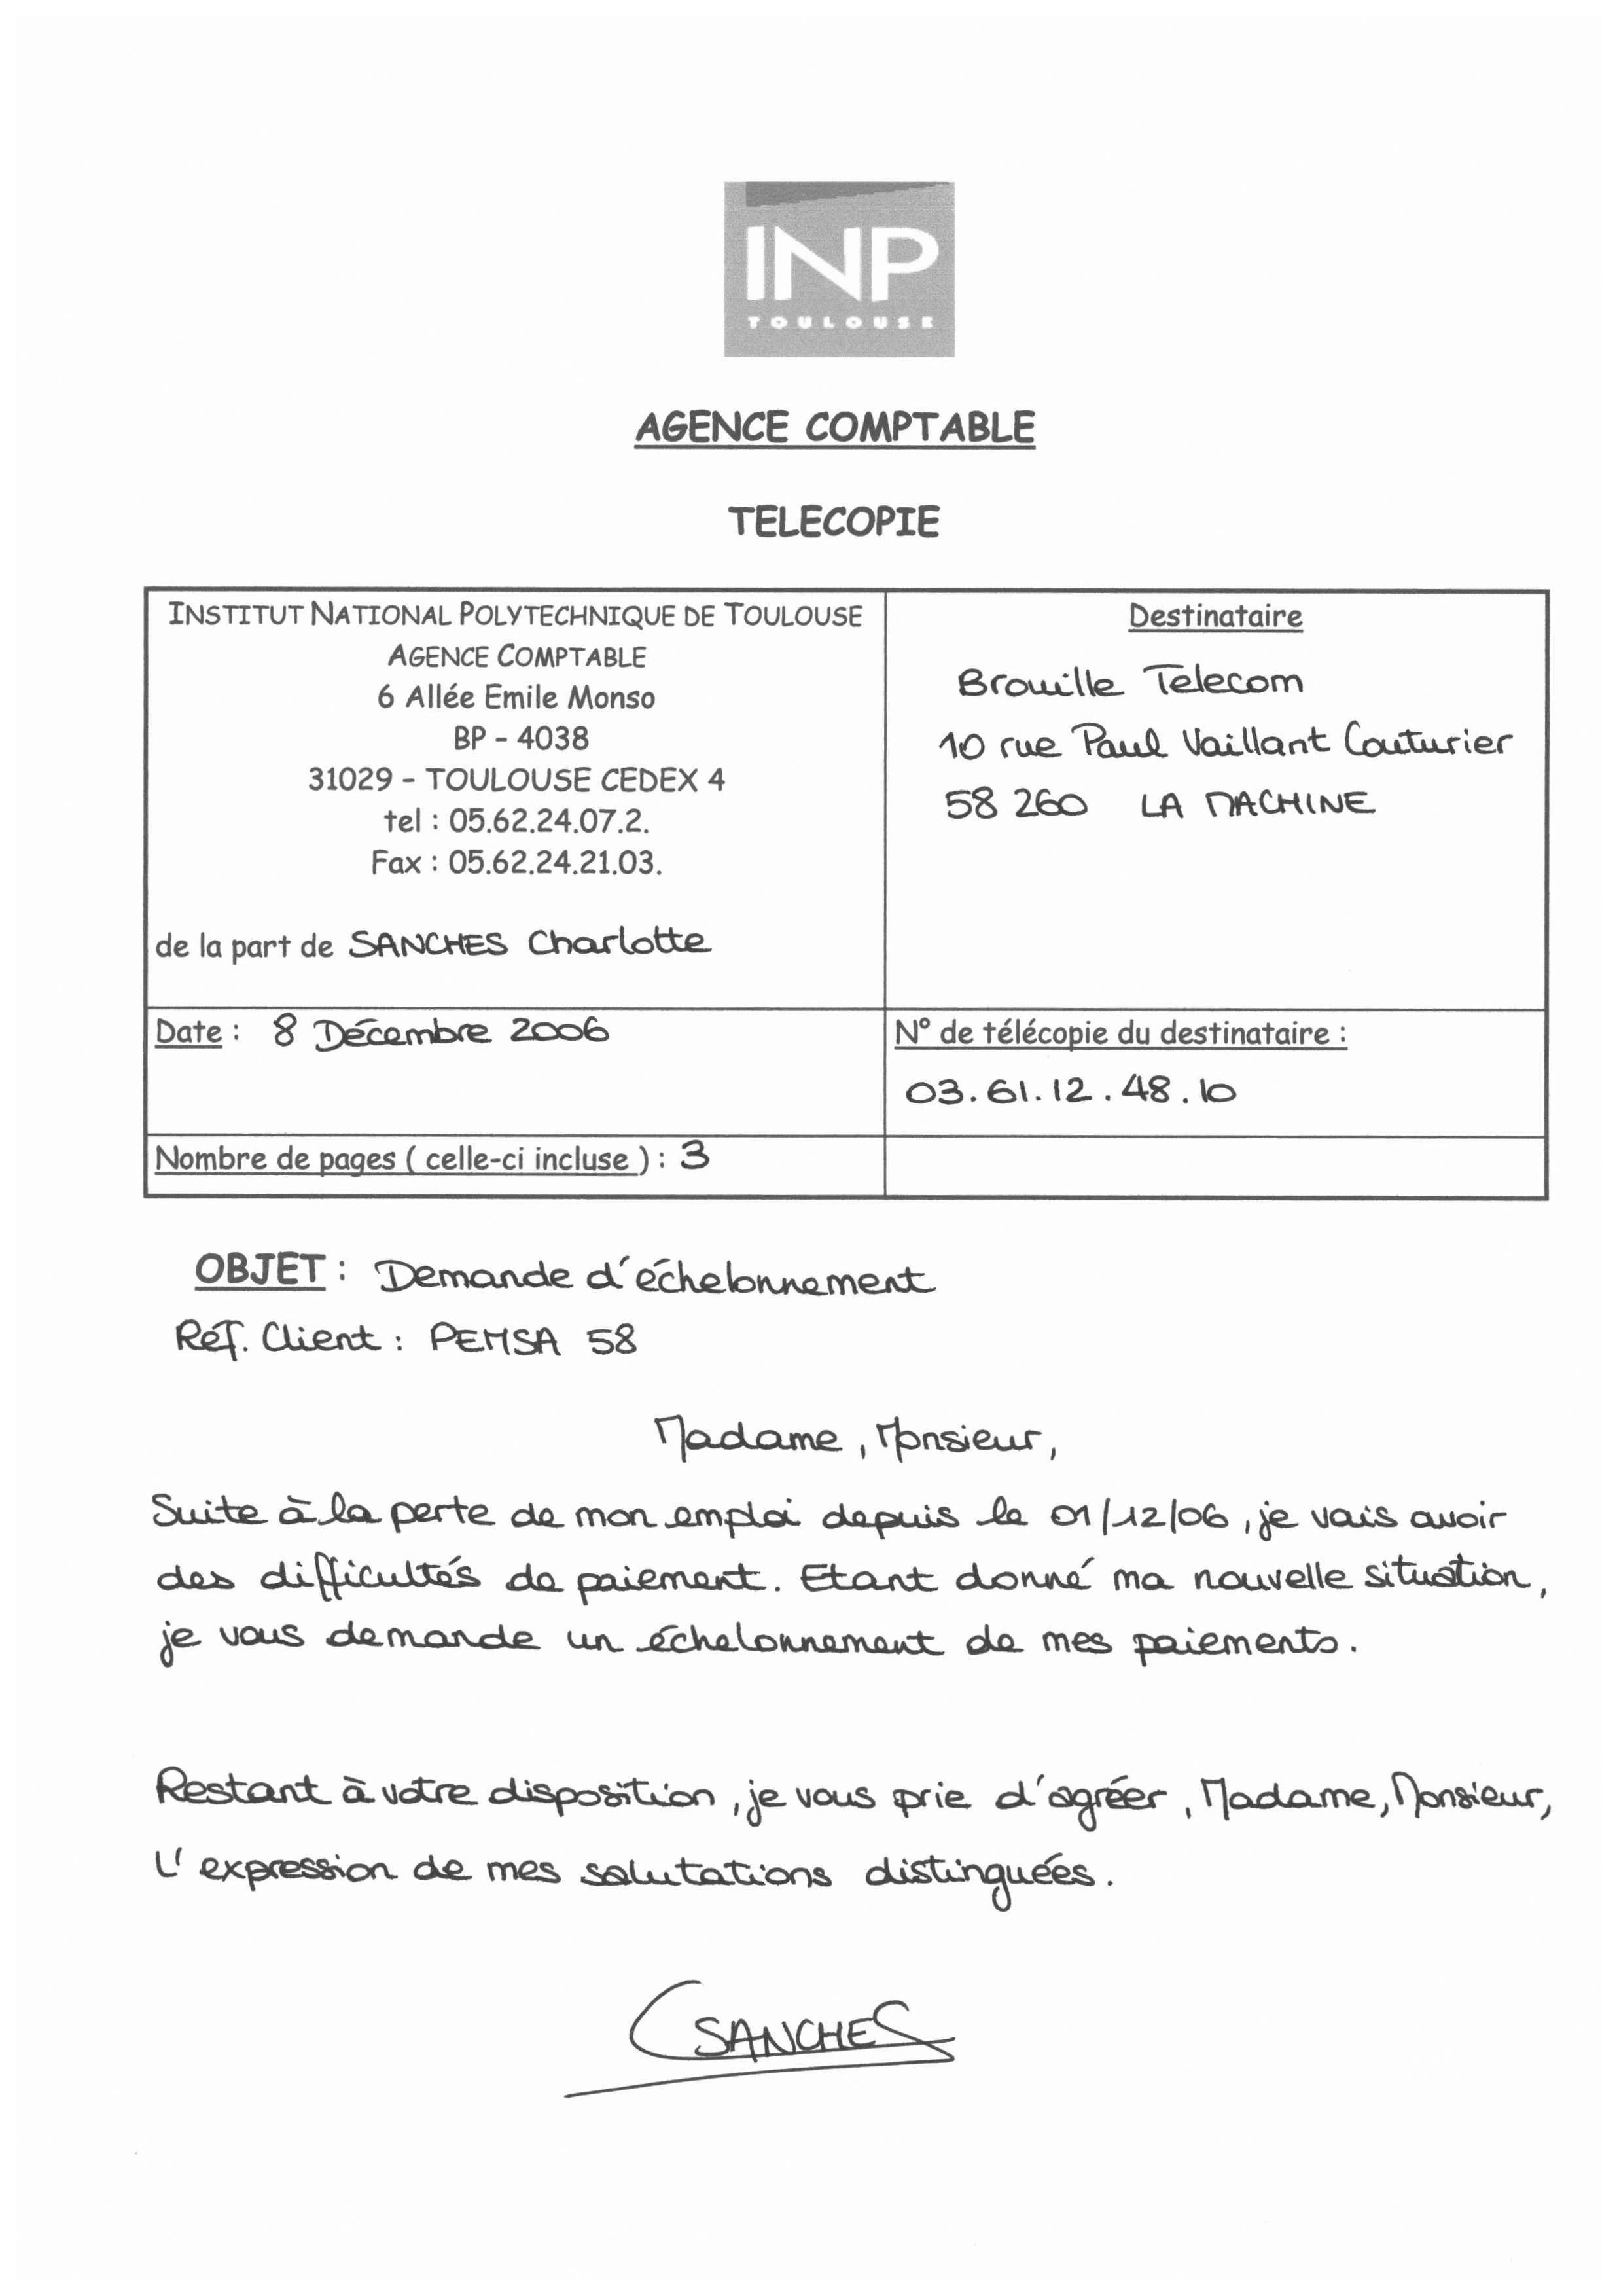 INP
TOULOUSE
AGENCE COMPTABLE
TELECOPIE
INSTITUT NATIONAL POLYTECHNIQUE DE TOULOUSE
AGENCE COMPTABLE
6 Allée Emile Monso
BP - 4038
31029 - TOULOUSE CEDEX 4
tel : 05.62.24.07.2.
Fax : 05.62.24.21.03.
de la part de SANCHES Charlotte
Destinataire
Brouille Telecom
10 rue Paul Vaillant Couturier
58 260 LA MACHINE
Date : 8 Décembre 2006
N° de télécopie du destinataire :
03.61.12.48.10
Nombre de pages ( celle-ci incluse ) : 3
OBJET : Demande d'échelonnement
Réf. Client : PEMSA 58
Madame, Monsieur,
Suite à la perte de mon emploi depuis le 01/12/06, je vais avoir
des difficultés de paiement. Etant donné ma nouvelle situation,
je vous demande un échelonnement de mes paiements.
Restant à votre disposition, je vous prie d'agréer, Madame, Monsieur,
L'expression de mes salutations distinguées.
CSANCHES